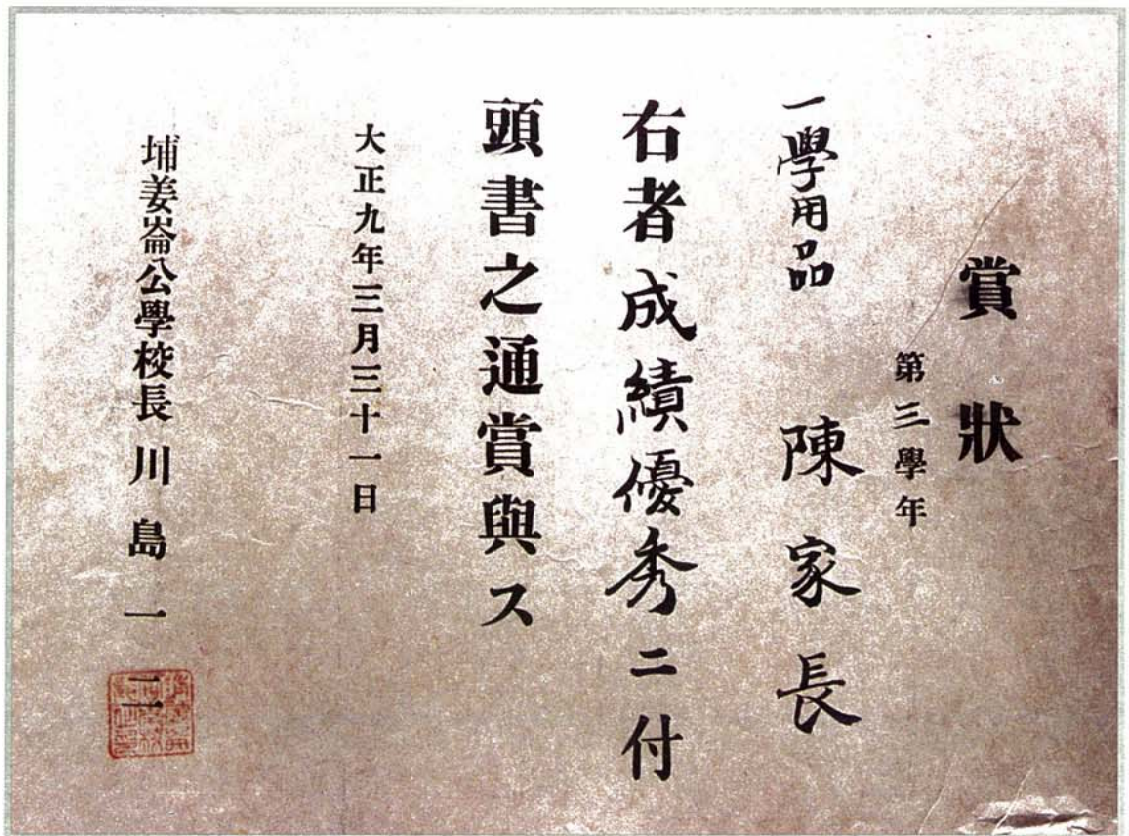 賞狀
第三學年
陳家長
一學用品
右者成績優秀ニ付
頭書之通賞與ス
大正九年三月三十一日
埔姜崙公學校長川島一二